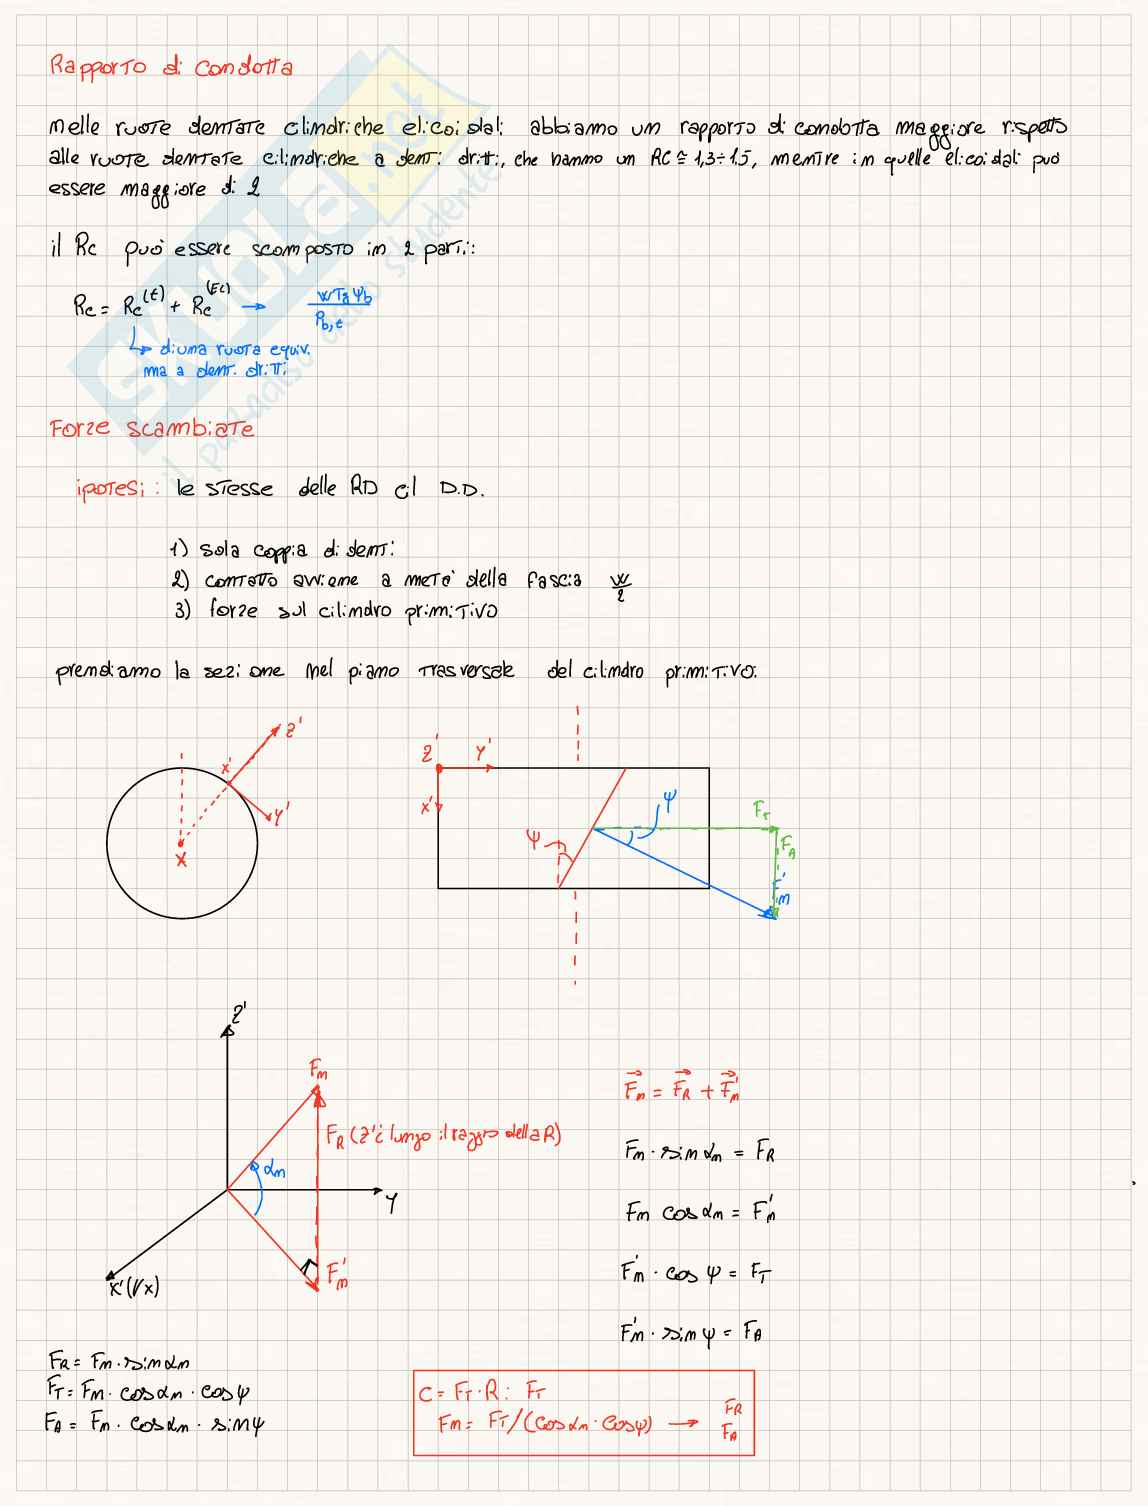 Rapporto di condotta
nelle ruote dentate cilindriche elicoidali abbiamo un rapporto di condotta maggiore rispetto
alle ruote dentate cilindriche a denti dritti, che hanno un RC ≅ 1,3÷1.5, mentre in quelle elicoidali può
essere maggiore di 2
il Rc può essere scomposto in 2 parti:
Rc = Rc^(t) + Rc^(Ec) → w Tg ψb / Pb,t
↳ di una ruota equiv.
ma a dent. dritti
Forze scambiate
ipotesi: le stesse delle RD cil D.D.
1) sola coppia di denti
2) contatto avviene a metà della fascia w/2
3) forze sul cilindro primitivo
prendiamo la sezione nel piano trasversale del cilindro primitivo.
z'
x'
y'
x
z' y'
x'
ψ
ψ
F_T
F_A
F'n
z'
Fn
F_R (z' è lungo il raggio della R)
αn
y
F'n
x' (// x)
Fn = F_R + F'n
Fn · sin αn = F_R
Fn cos αn = F'n
F'n · cos ψ = F_T
F'n · sin ψ = F_A
F_R = Fn · sin αn
F_T = Fn · cos αn · cos ψ
F_A = Fn · cos αn · sin ψ
C = F_T · R : F_T
Fn = F_T/(cos αn · cos ψ) → F_R
F_A
SKUOLA.net
il paradiso dello studente